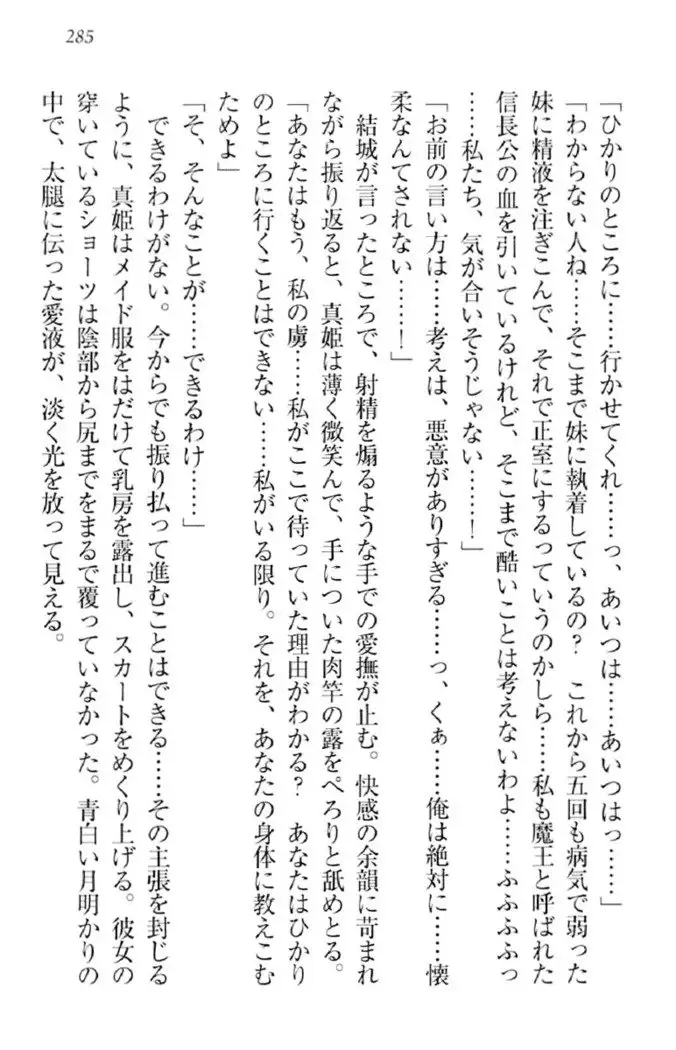 285
「ひかりのところに……行かせてくれ……っ、あいつは……あいつはっ……」
「わからない人ね……そこまで妹に執着しているの？　これから五回も病気で弱った
妹に精液を注ぎこんで、それで正室にするっていうのかしら……私も魔王と呼ばれた
信長公の血を引いているけれど、そこまで酷いことは考えないわよ……ふふふふっ
……私たち、気が合いそうじゃない……！」
「お前の言い方は……考えは、悪意がありすぎる……っ、くぁ……俺は絶対に……懐
柔なんてされない……！」
結城が言ったところで、射精を煽るような手での愛撫が止む。快感の余韻に苛まれ
ながら振り返ると、真姫は薄く微笑んで、手についた肉竿の露をぺろりと舐めとる。
「あなたはもう、私の虜……私がここで待っていた理由がわかる？　あなたはひかり
のところに行くことはできない……私がいる限り。それを、あなたの身体に教えこむ
ためよ」
「そ、そんなことが……できるわけ……」
できるわけがない。今からでも振り払って進むことはできる……その主張を封じる
ように、真姫はメイド服をはだけて乳房を露出し、スカートをめくり上げる。彼女の
穿いているショーツは陰部から尻までをまるで覆っていなかった。青白い月明かりの
中で、太腿に伝った愛液が、淡く光を放って見える。